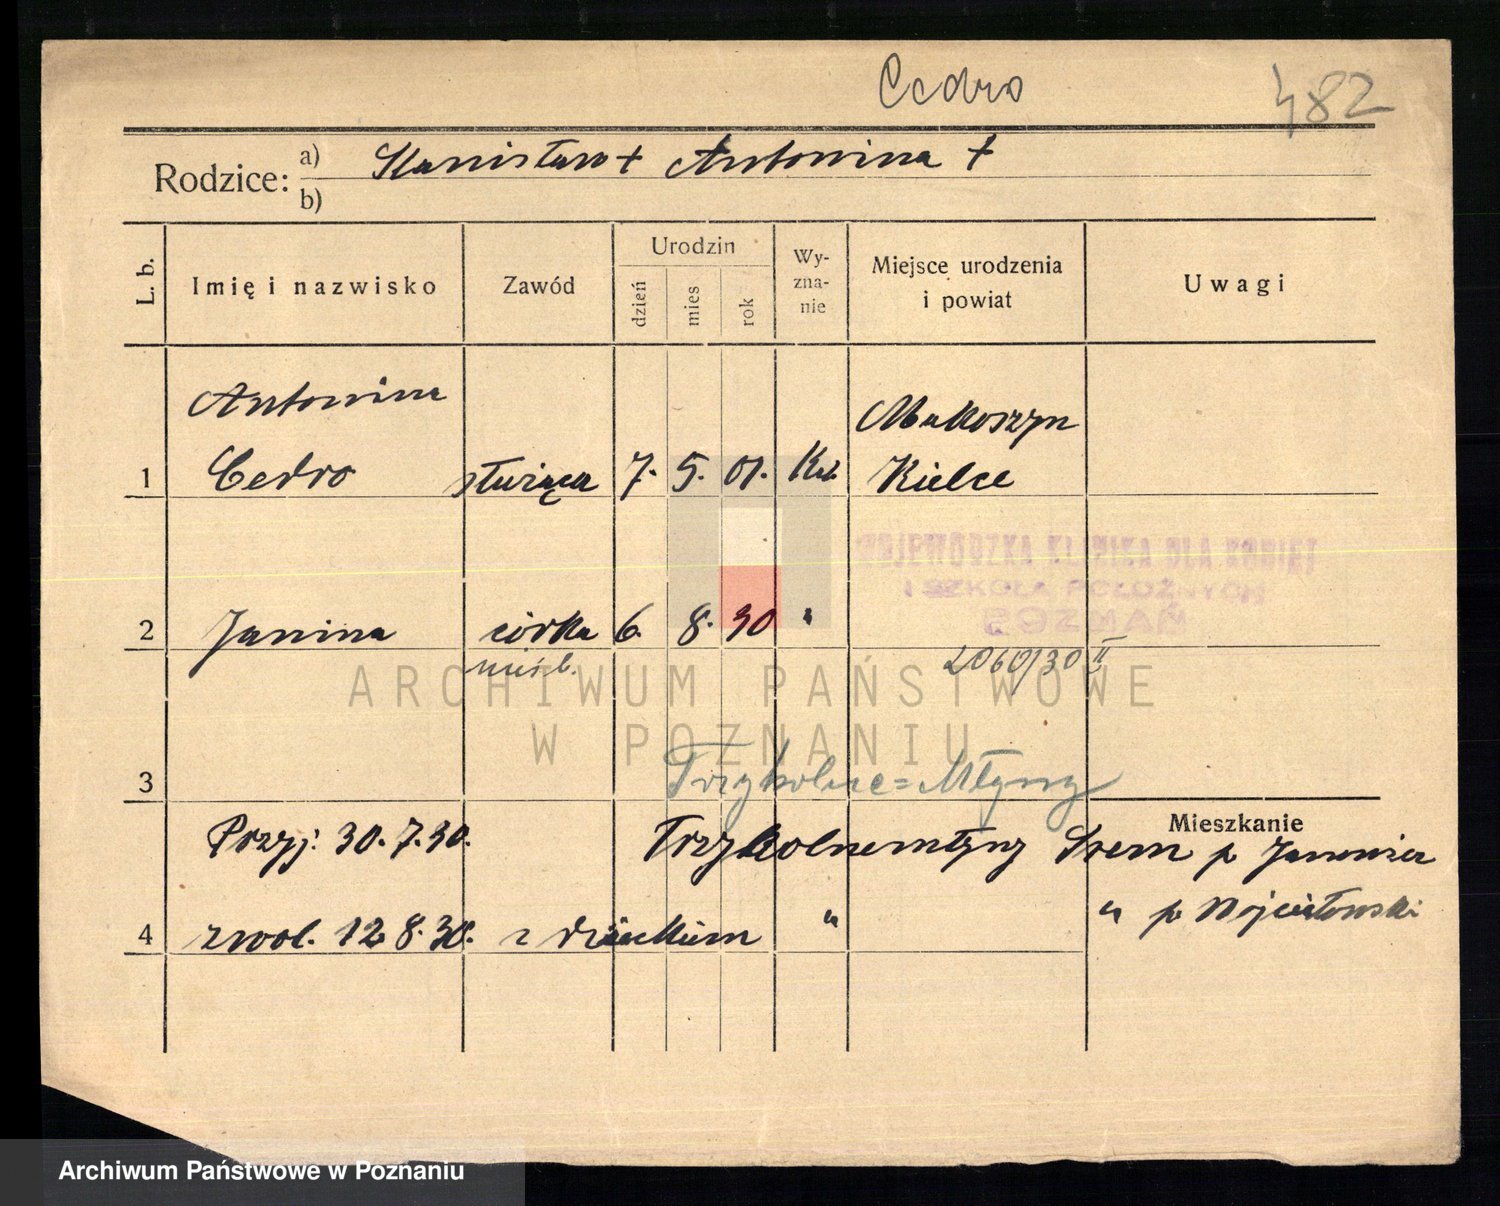 Cedro
482
Rodzice: a) Stanisław + Antonina +
b)
L. b.
Imię i nazwisko
Zawód
Urodzin
dzień
mies
rok
Wy-
zna-
nie
Miejsce urodzenia
i powiat
Uwagi
Antonina
Makoszyn
1 Cedro służąca 7. 5. 01. Kat. Kielce
WOJEWÓDZKA KLINIKA DLA KOBIET
I SZKOŁA POŁOŻNYCH
POZNAŃ
2 Janina córka 6. 8. 30 "
nieśl. 2060/30 II
ARCHIWUM PAŃSTWOWE
W POZNANIU
3 Trzykolne=Młyny
Mieszkanie
Przyj: 30.7.30. Trzykolnemłyny Srem p
4 zwol. 12 8.30. z dzieckiem " " p
Archiwum Państwowe w Poznaniu